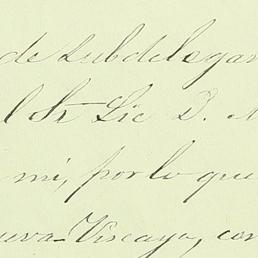 de Subdelegan
l Sr Lic D. M
mi, por lo que
ueva-Viscaya, con